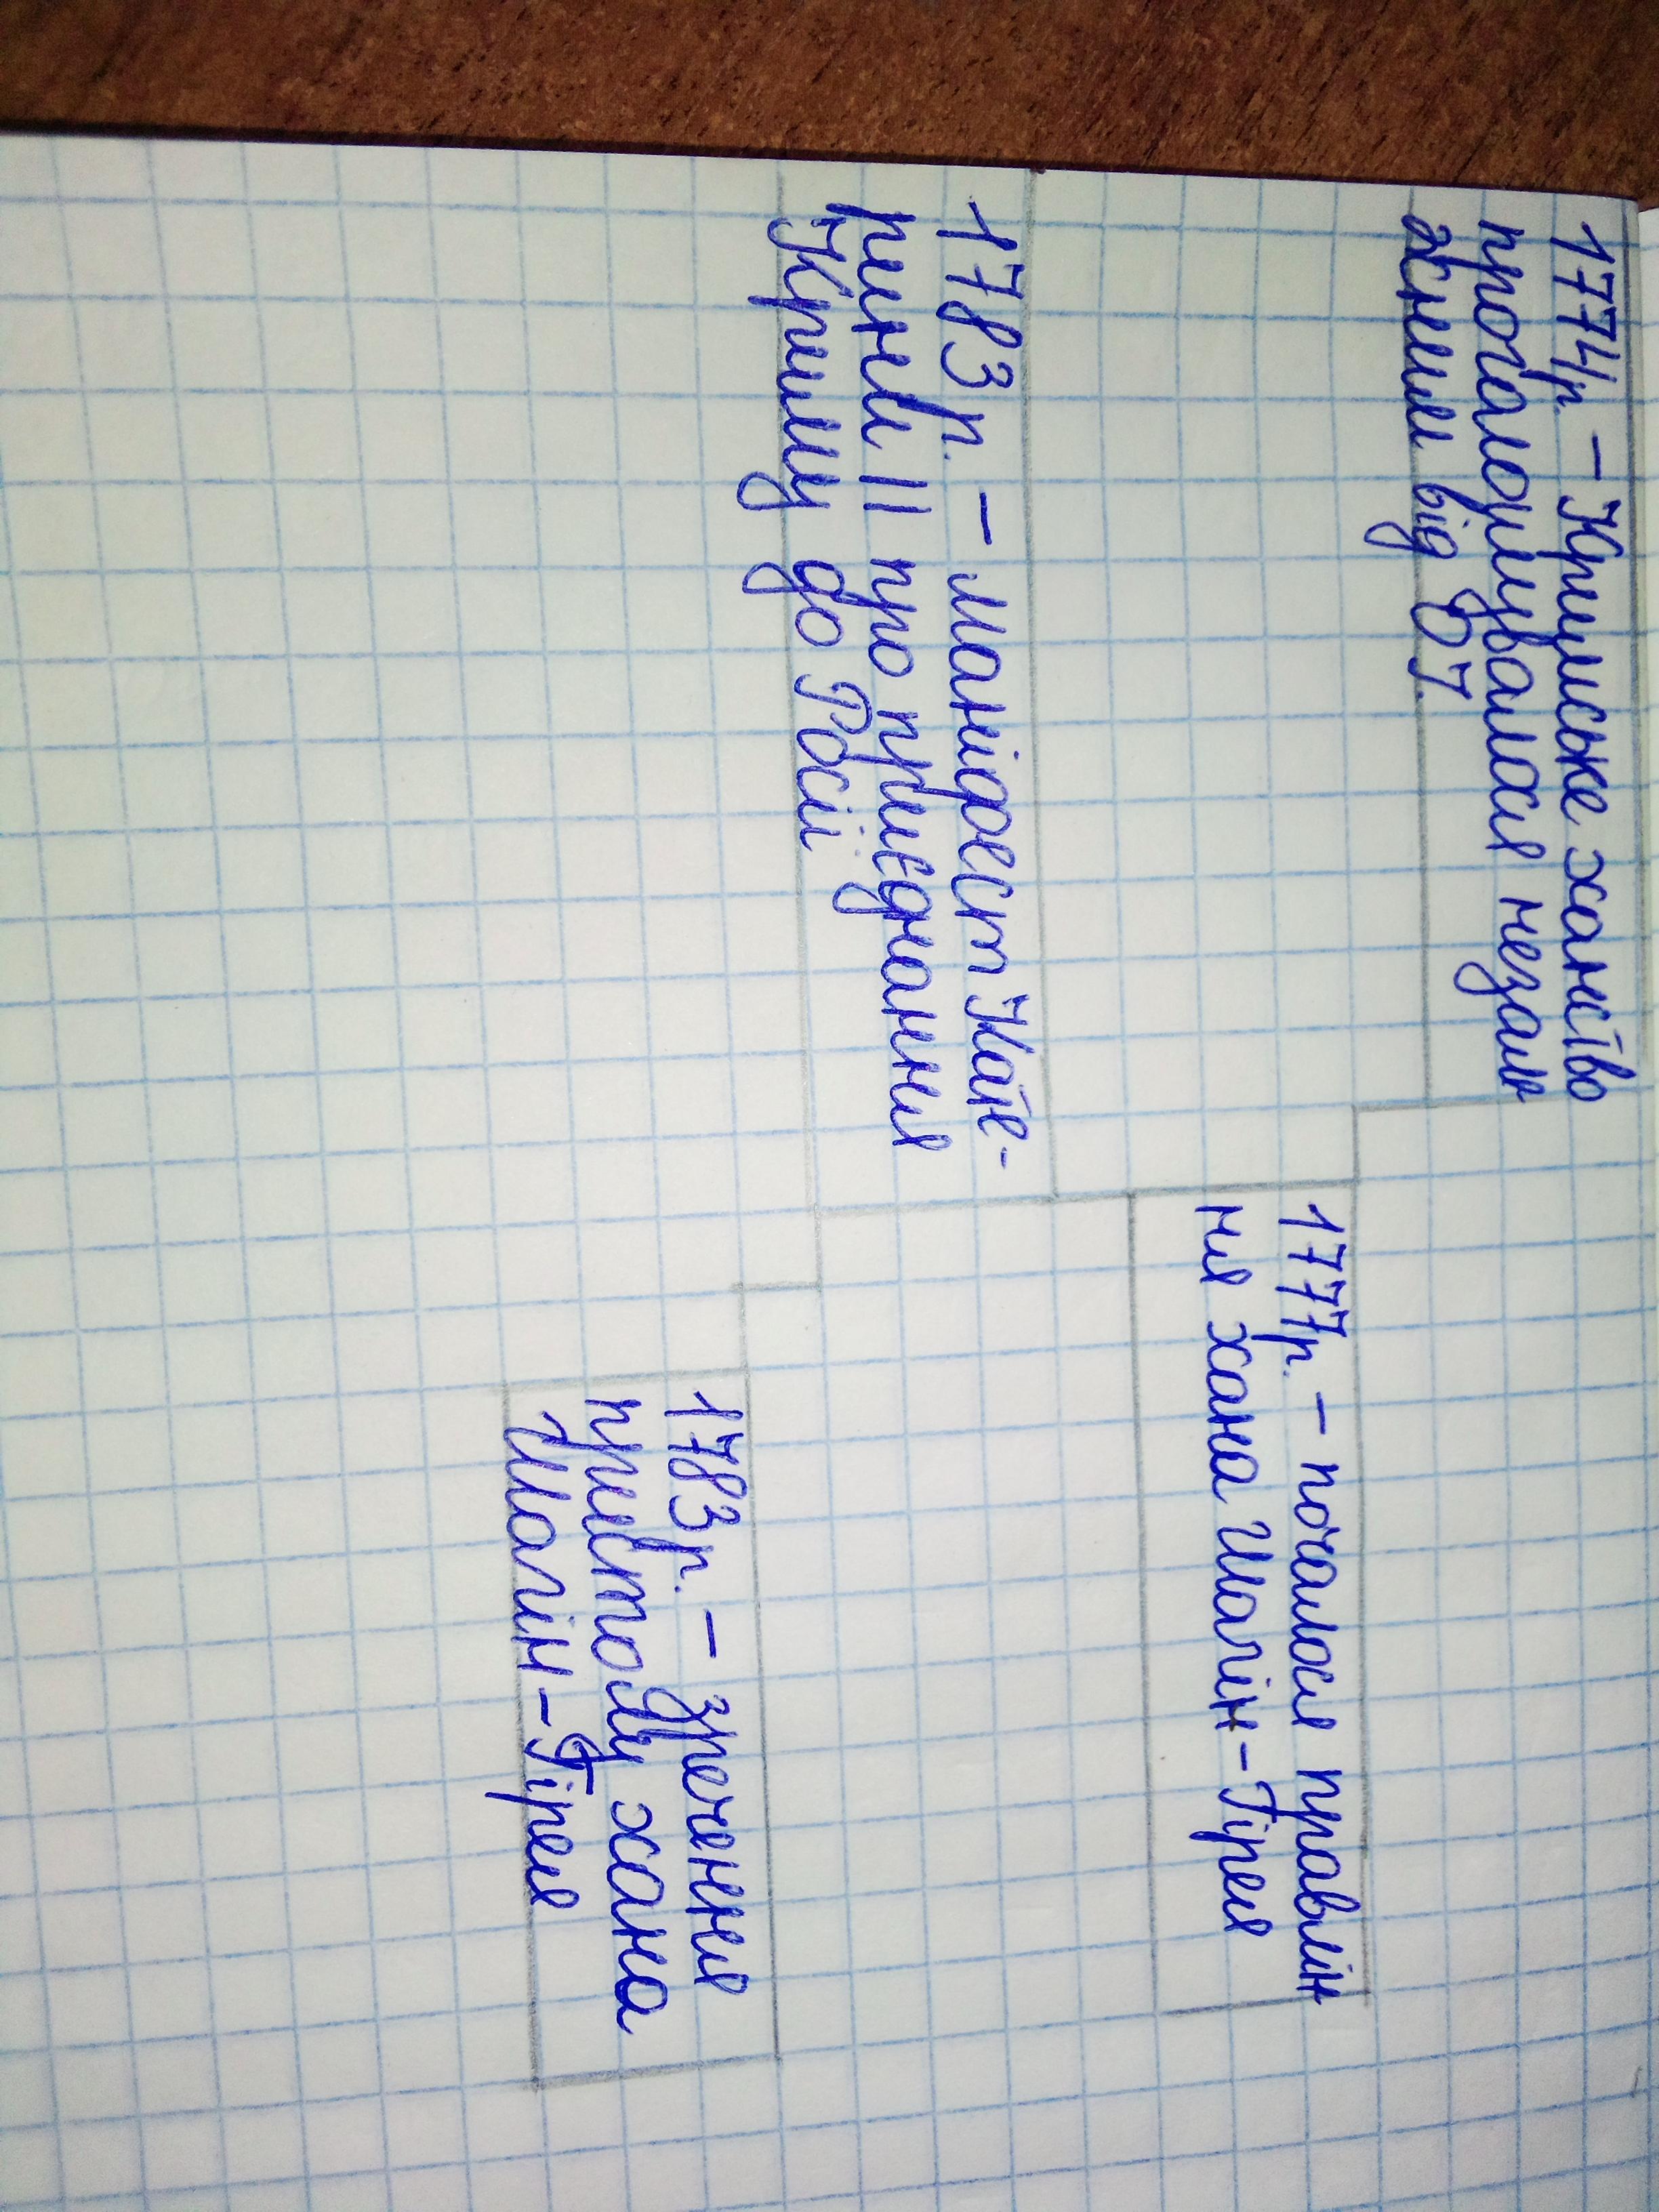 1774р. – Кримське ханство
проголошувалося незале
жним від ОІ.
1777р. – почалося правлін
ня хана Шагін-Гірея
1783 р. – маніфест Кате-
рини II про приєднання
Криму до Росії
1783р. – зречення
престолу хана
Шагін-Гірея